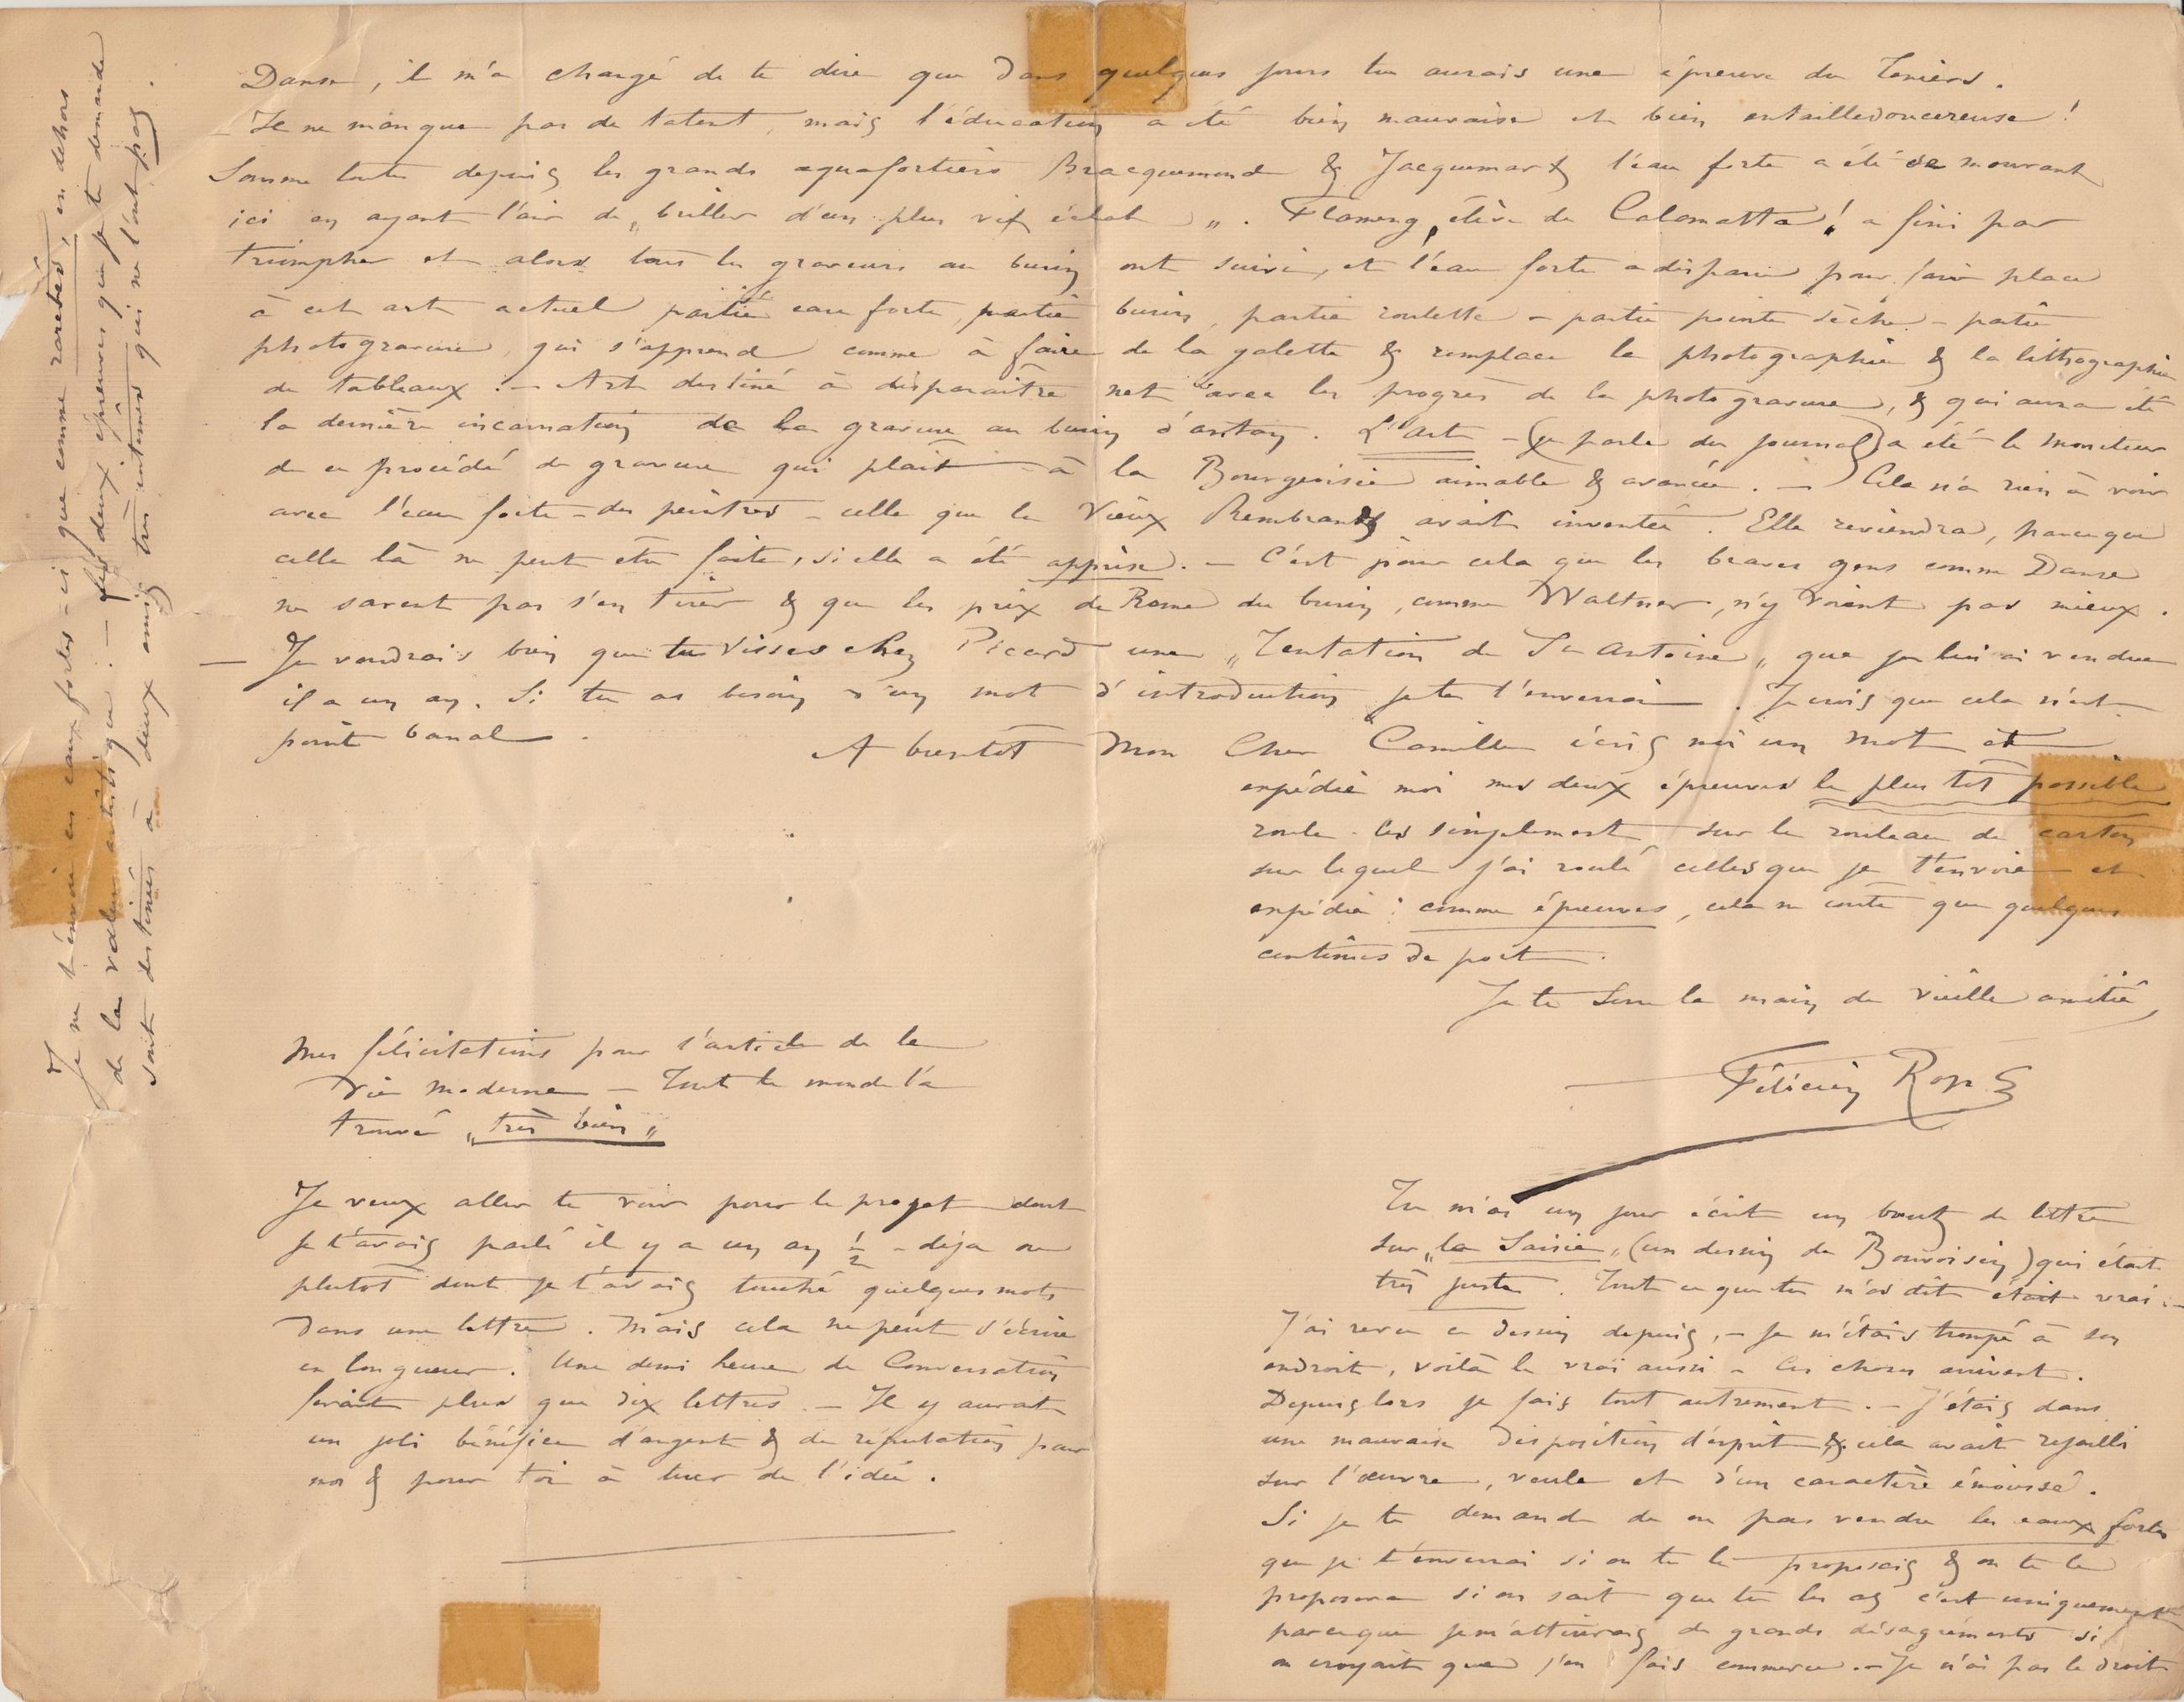 Danse, il m'a chargé de te dire que dans quelques jours tu aurais une épreuve du Teniers.
– Il ne manque pas de talent, mais l'éducation a été bien mauvaise et bien entailledoucereuse !
Somme toute depuis les grands aquafortiers Bracquemond & Jacquemart l'eau forte a été se mourant
ici en ayant l'air de „briller d'un plus vif éclat„. Flameng, élève de Calamatta ! a fini par
triompher et alors tous les graveurs au burin ont suivi, et l'eau forte a disparu pour faire place
à cet art actuel partie eau forte, partie burin, partie roulette – partie pointe sèche – partie
photogravure, qui s'apprend comme à faire de la galette & remplace la photographie & la lithographie
de tableaux. – Art destiné à disparaître net avec les progrès de la photogravure, & qui aura été
la dernière incarnation de la gravure au burin d'antan. L'Art – (je parle du journal) a été le moniteur
de ce procédé de gravure qui plaît à la Bourgeoisie aimable & avancée. – Cela n'a rien à voir
avec l'eau forte – des peintres – celle que le vieux Rembrandt avait inventée. Elle reviendra, parceque
celle là ne peut être faite, si elle a été apprise. – C'est pour cela que les braves gens comme Danse
ne savent pas s'en tirer & que les prix de Rome du burin, comme Waltner, n'y voient pas mieux.
– Je voudrais bien que tu visses chez Picard une „Tentation de St Antoine„ que je lui ai vendue
il a un an. Si tu as besoin d'un mot d'introduction je te l'enverrai. Je crois que cela n'est
point banal.
A bientôt Mon Cher Camille écris moi un mot et
expédie moi mes deux épreuves le plus tôt possible
roule-les simplement sur le rouleau de carton
sur lequel j'ai roulé celles que je t'envoie et
expédie : comme épreuves, cela ne coute que quelques
centimes de port.
Je te serre la main de vieille amitié,
Félicien Rops
Mes félicitations pour l'article de la
Vie Moderne – Tout le monde l'a
trouvé „très bien„
Je veux aller te voir pour le projet dont
je t'avais parlé il y a un an ½ – déja ou
plutot dont je t'avais touché quelques mots
dans une lettre. Mais cela ne peut s'écrire
en longueur. Une demi heure de Conversation
ferait plus que dix lettres. – Il y aurait
un joli bénéfice d'argent & de reputation pour
moi & pour toi à tirer de l'idée.
Tu m'as un jour écrit un bout de lettre
sur „la Saisie„ (un dessin de Bonvoisin) qui était
très juste. Tout ce que tu m'as dit était vrai. –
J'ai revu ce dessin depuis, – je m'étais trompé à son
endroit, voilà le vrai aussi – les choses arrivent.
Depuis lors je fais tout autrement. – J'étais dans
une mauvaise disposition d'esprit & cela avait rejailli
sur l'œuvre, veule et d'un caractère émoussé.
Si je te demande de ne pas vendre les eaux fortes
que je t'enverrai si on te le proposais & on te le
proposera si on sait que tu les as c'est uniquement
parceque je m'attirerais de grands désagréments si
on croyait que j'en fais commerce. – Je n'ai pas le droit
Je ne t'envoie ces eaux-fortes-ci que comme raretés, en dehors
de la valeur artistique. – Les deux épreuves que je te demande
sont destinées à deux amis très intimes qui ne l'ont pas.